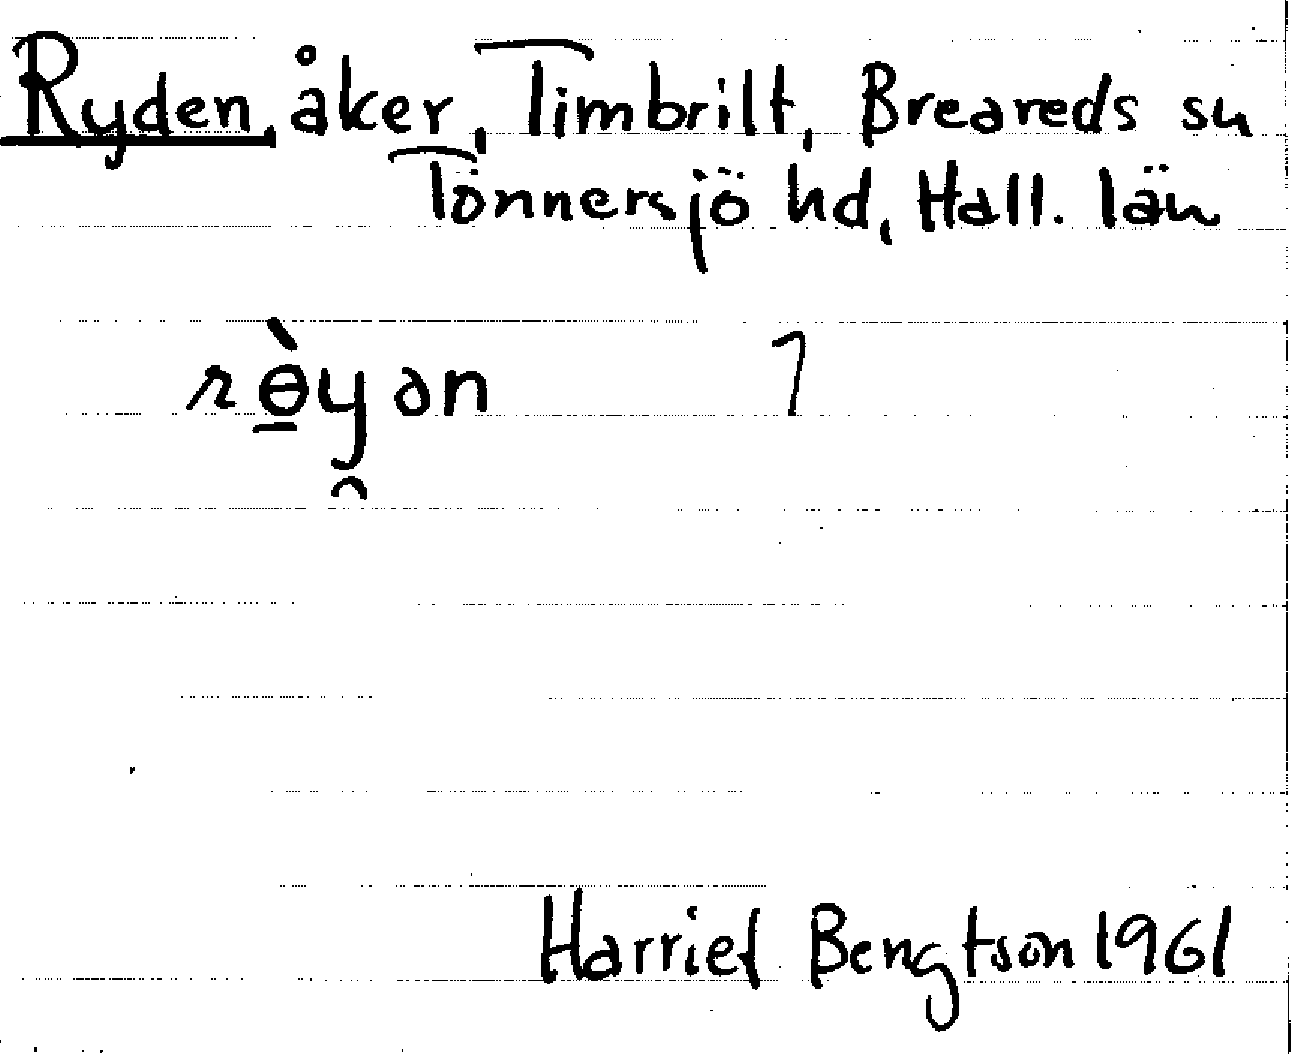 Ryden, åker, Timbrilt, Breareds sn
Tönnersjö hd, Hall. län
rɵ̀y̯ən 7
Harriet Bengtson 1961